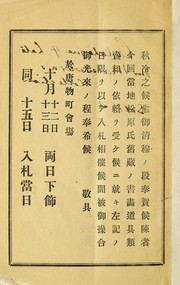 秋冷之候愈御清穆ノ段奉賀候陳者
今回當地松原氏舊藏ノ書畫道具類
賣却ノ依頼ヲ受ケ候ニ就キ左記ノ
日限ヲ以テ入札相催候間被御操合
御光來ノ程奉希候　敬具
於唐物町會場
十月十二日
十三日
兩日下飾
同　十五日　入札當日